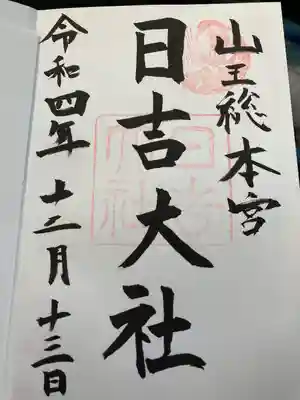 山王総本宮
日吉大社
令和四年 十二月 十三日